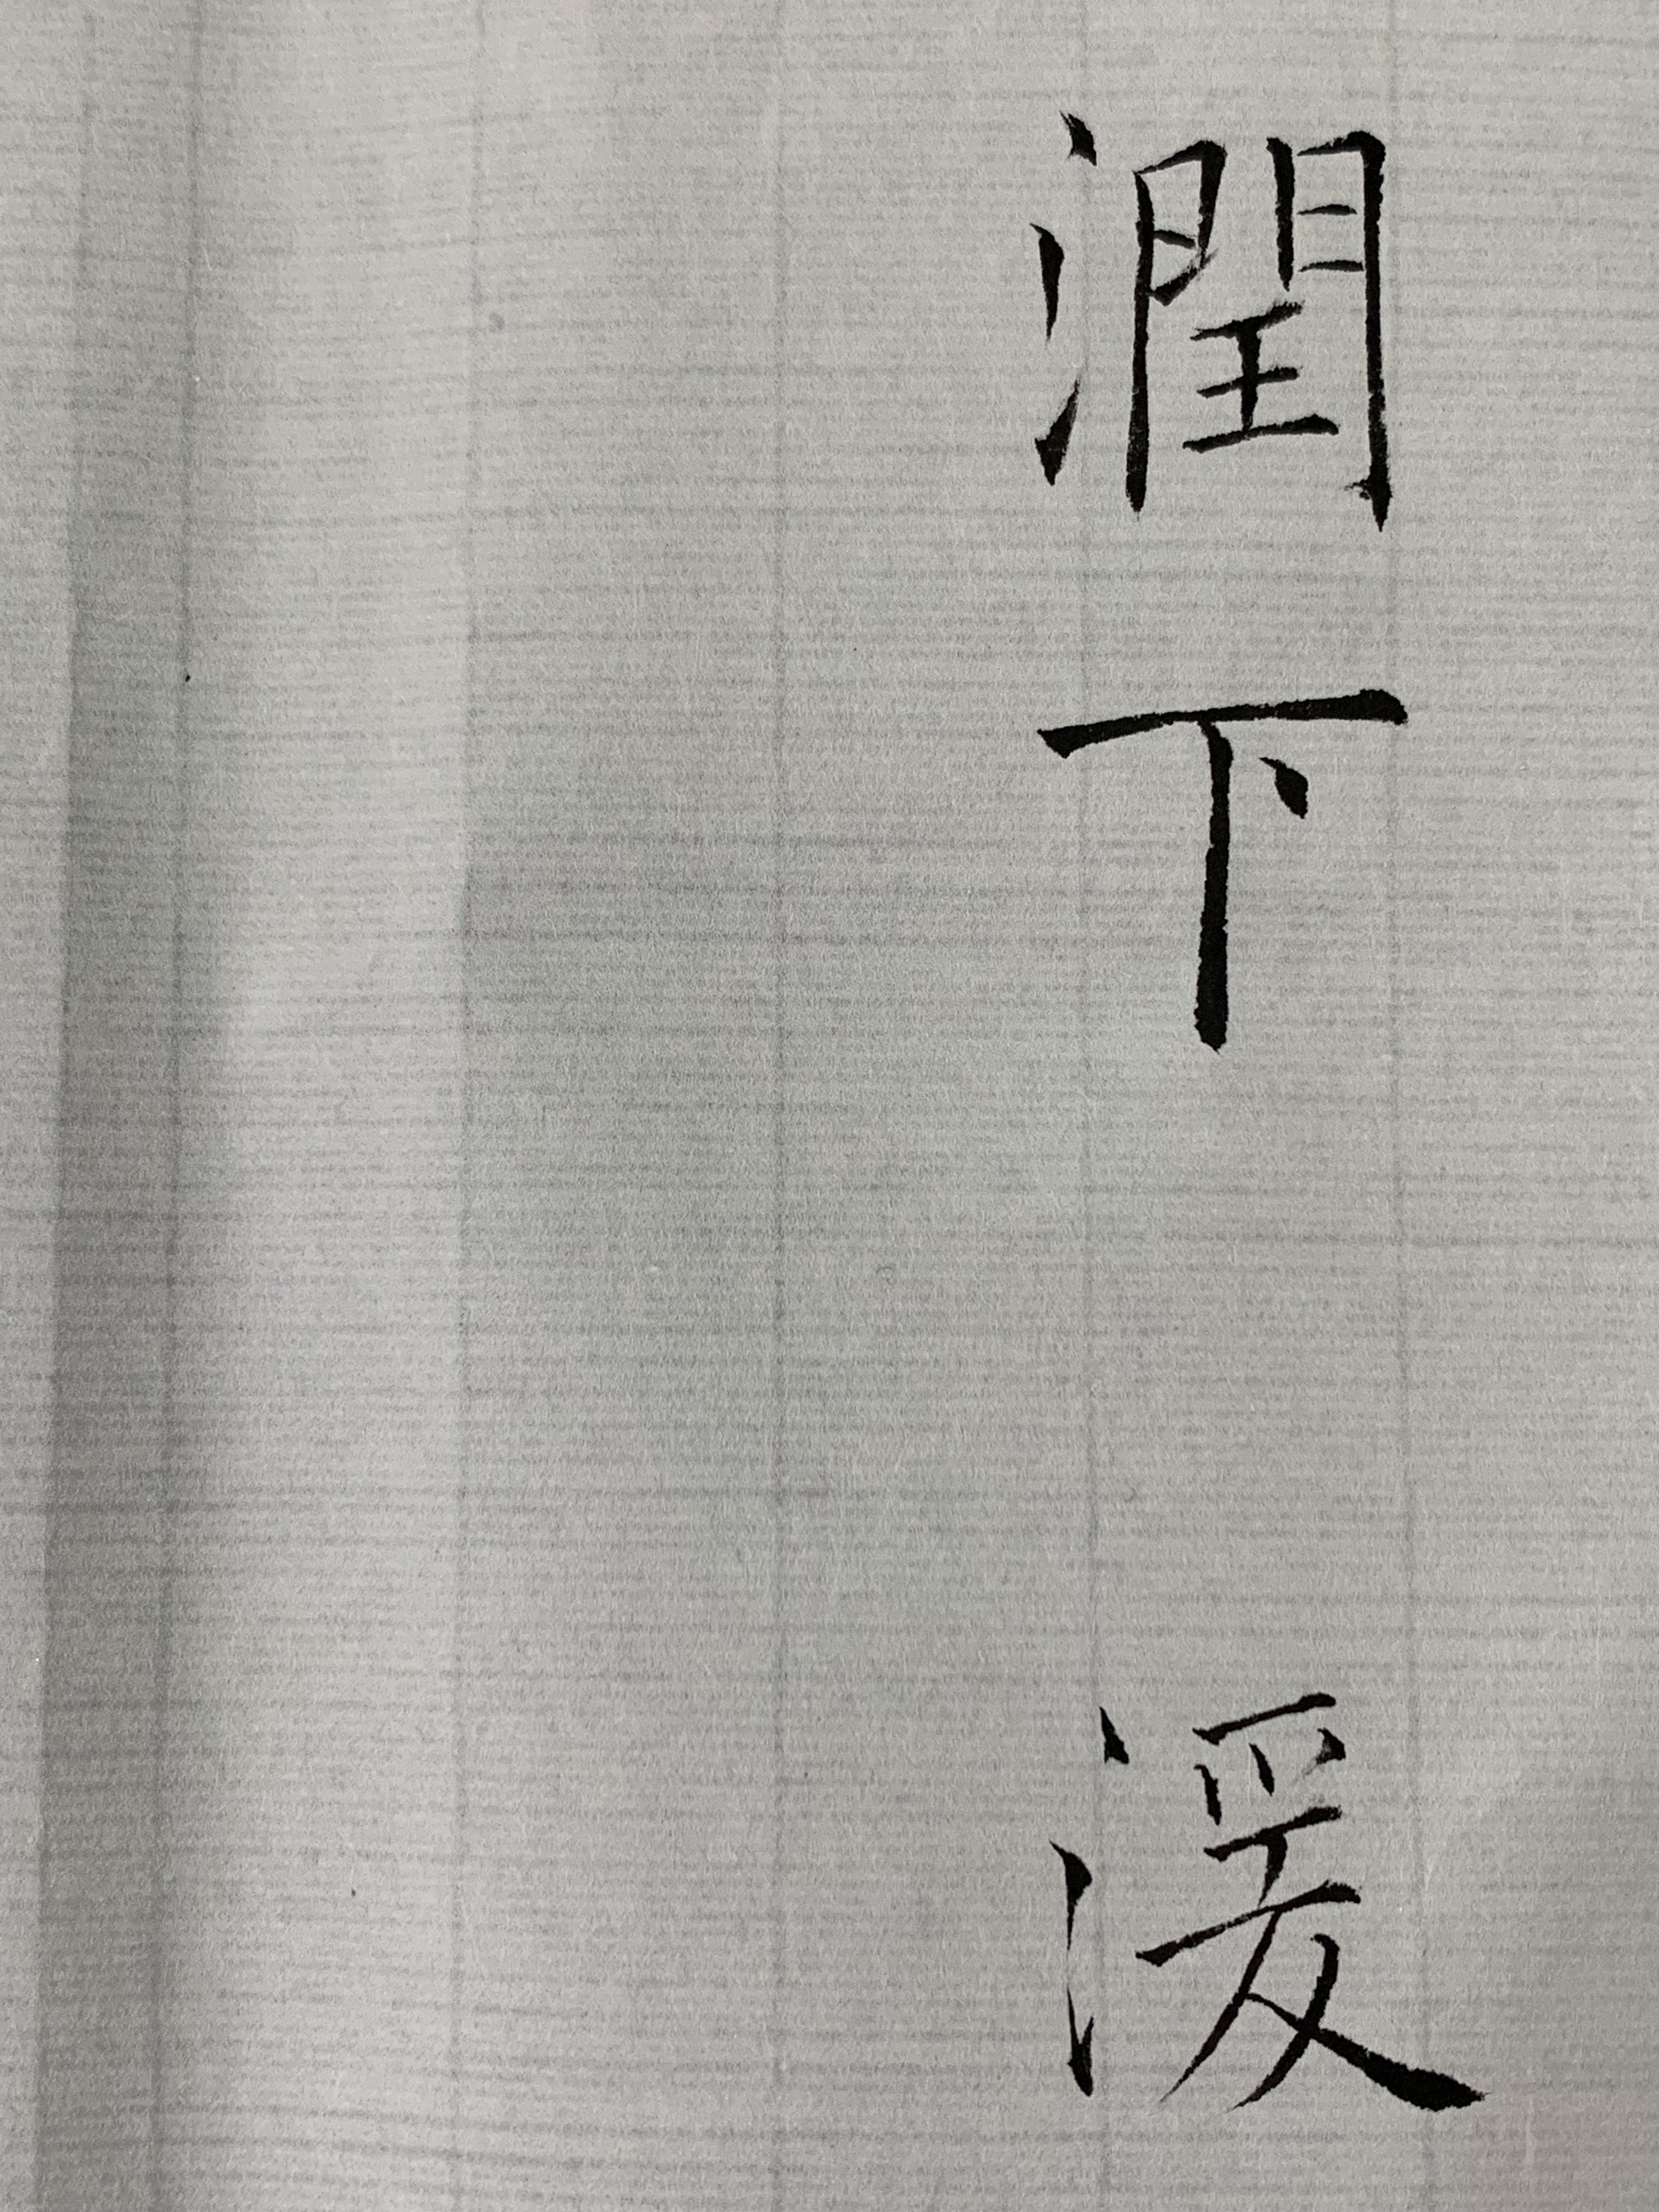 潤下
湲